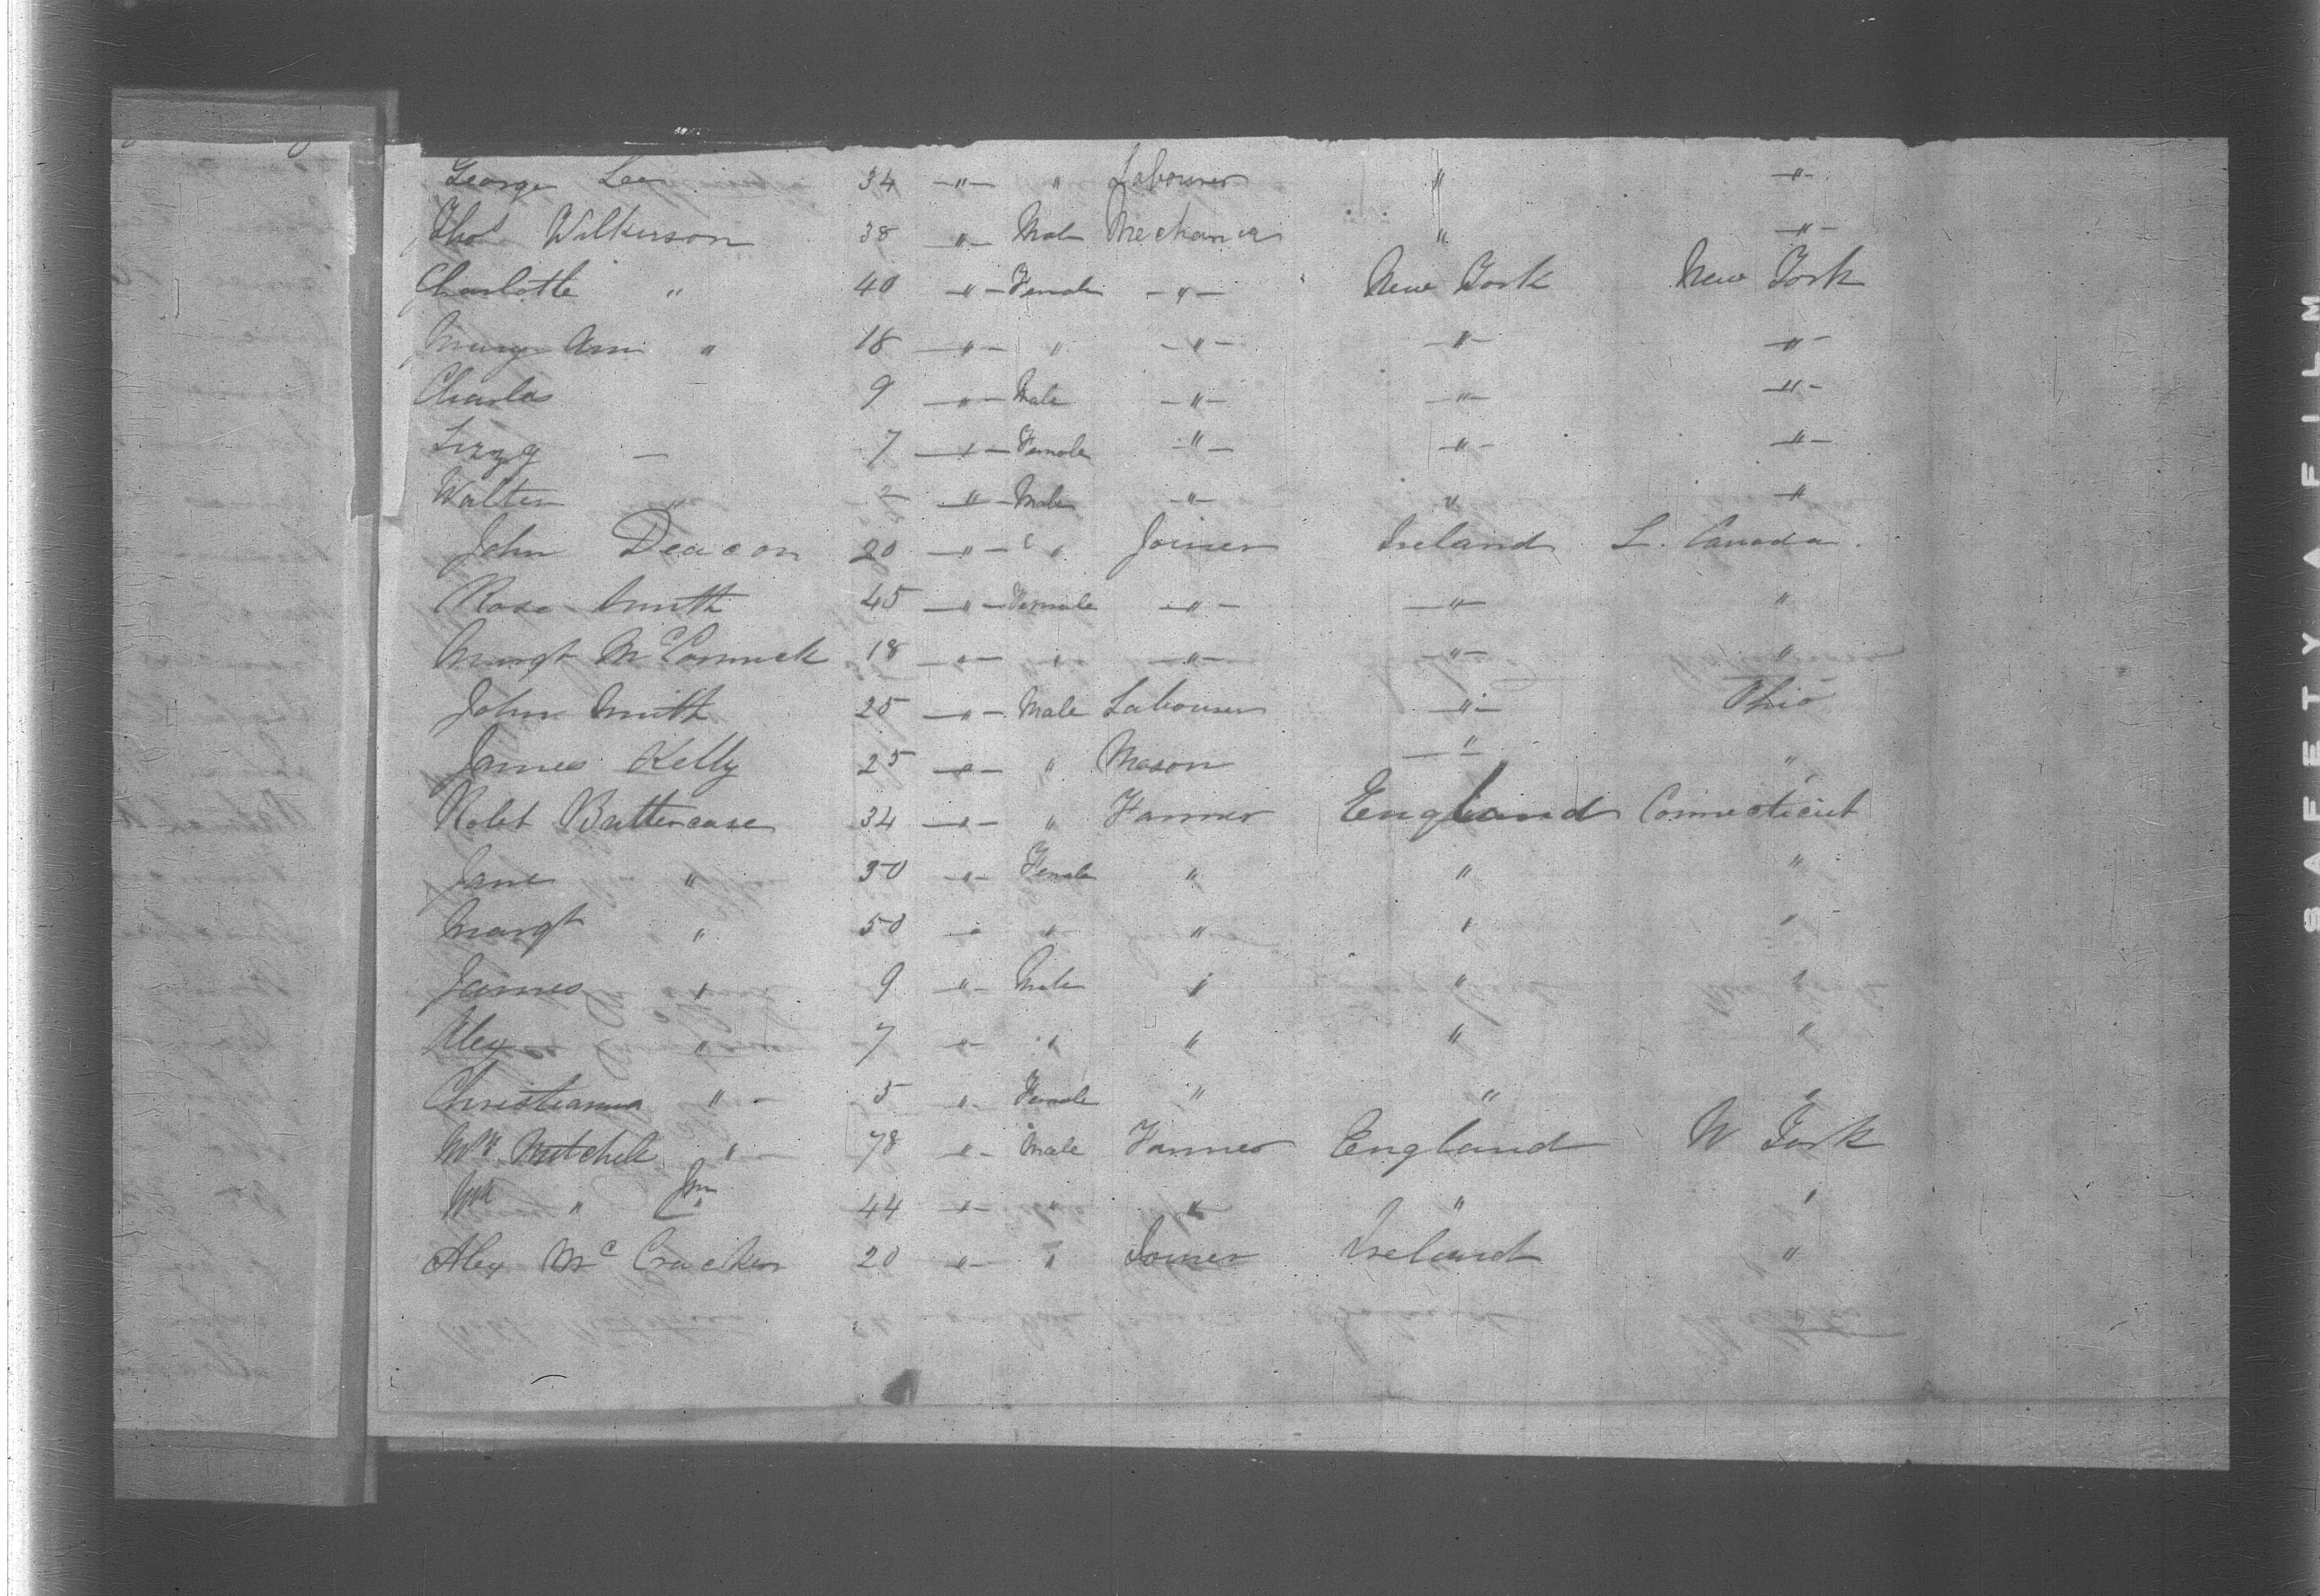 George Lee 34 —"— " Labourer " —"—
Thos Wilkerson 38 —"— Male Mechanic " —"—
Charlotte " 40 —"— Female —"— New York New York
Mary Ann " 18 —"— " —"— —"— —"—
Charles 9 —"— Male —"— —"— —"—
Lizzy — 7 —"— Female —"— —"— —"—
Walter " 2 —"— Male —"— " —"—
John Deacon 20 —"— " Joiner Ireland L. Canada.
Rose Smith 45 —"— Female —"— —"— "
Margt McCormick 18 —"— " —"— —"— "
John Smith 25 —"— Male Labourer —"— Ohio
James Kelly 25 —"— " Mason —"— "
Robt Buttercase 34 —"— " Farmer England Connecticut
Jane " 30 —"— Female " " "
Margt " 50 —"— " " " "
James " 9 —"— Male " " "
Alex " 7 —"— " " " "
Christianna " — 5 " Female " " "
Wm Mitchell " — 78 —"— Male Farmer England N York
Wm " Jnr 44 —"— " " " "
Alex McCracken 20 —"— " Joiner Ireland "
SAFETY A FILM